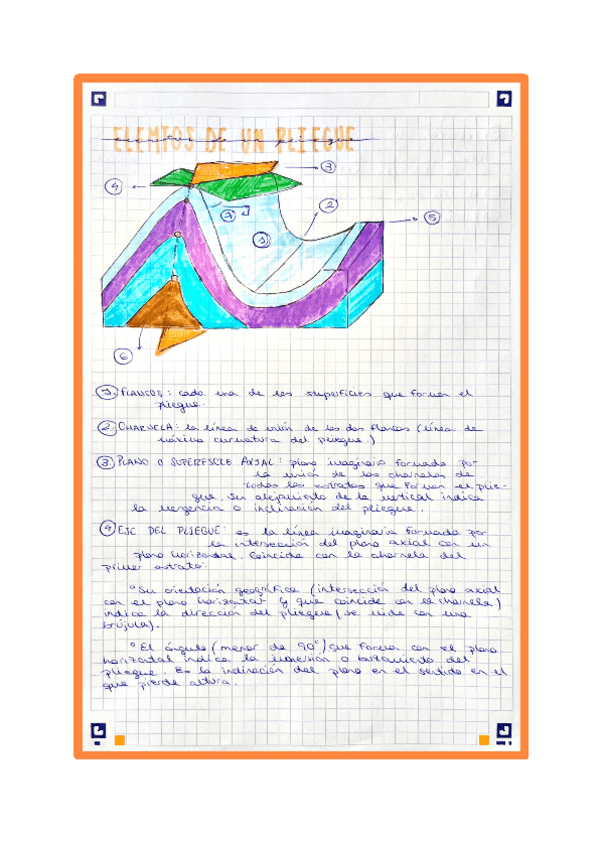 ELEMTOS DE UN PLIEGUE
3
4
2
7
1
5
6
1. FLANCOS: cada una de las superficies que forman el
pliegue.
2. CHARNELA: la línea de unión de los dos flancos (línea de
máxima curvatura del pliegue.)
3. PLANO O SUPERFICIE AXIAL: plano imaginario formado por
la unión de las charnelas de
todos los estratos que forman el plie-
gue. Su alejamiento de la vertical indica
la vergencia o inclinación del pliegue.
4 EJE DEL PLIEGUE: es la línea imaginaria formada por
la intersección del plano axial con un
plano horizontal. Coincide con la charnela del
primer estrato:
° Su orientación geográfica (intersección del plano axial
con el plano horizontal y que coincide con la charnela)
indica la dirección del pliegue (se mide con una
brújula).
° El ángulo (menor de 90°) que forma con el plano
horizontal indica la inmersión o buzamiento del
pliegue. Es la inclinación del plano en el sentido en el
que pierde altura.